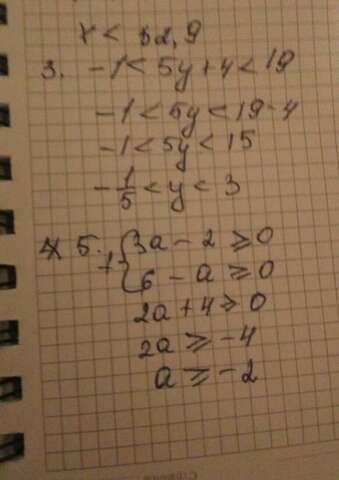 x < 32,9
3. -1 < 5y + 4 < 19
-1 < 5y < 19-4
-1 < 5y < 15
-1/5 < y < 3
5. +{3a - 2 ⩾ 0
6 - a ⩾ 0
2a + 4 ⩾ 0
2a ⩾ -4
a ⩾ -2